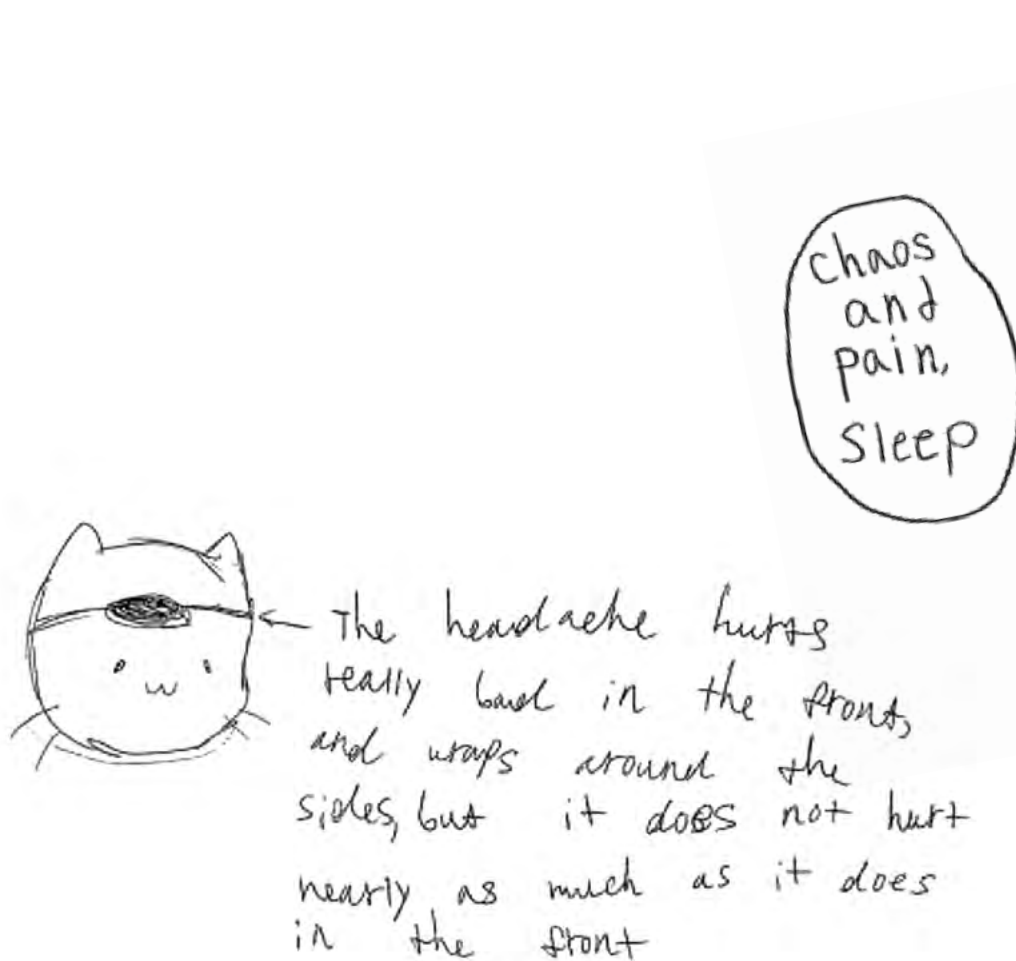 chaos
and
pain,
sleep
The headache hurts
really bad in the front,
and wraps around the
sides, but it does not hurt
nearly as much as it does
in the front